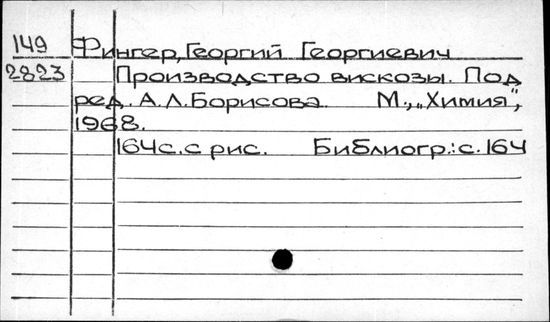 149 Фингер, Георгий Георгиевич
2823 Производство вискозы. Под
ред. А.Л.Борисова. М., „Химия",
1968.
164с. с рис. Библиогр.: с. 164